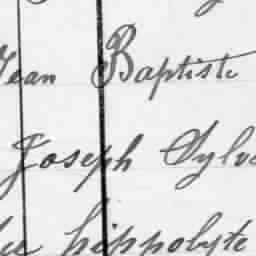 Jean Baptiste
Joseph Sylve
hippolyte